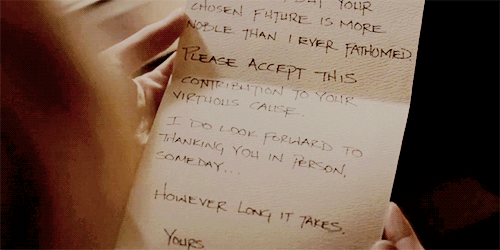 YOUR
CHOSEN FUTURE IS MORE
NOBLE THAN I EVER FATHOMED.
PLEASE ACCEPT THIS
CONTRIBUTION TO YOUR
VIRTUOUS CAUSE.
I DO LOOK FORWARD TO
THANKING YOU IN PERSON,
SOMEDAY...
HOWEVER LONG IT TAKES.
YOURS